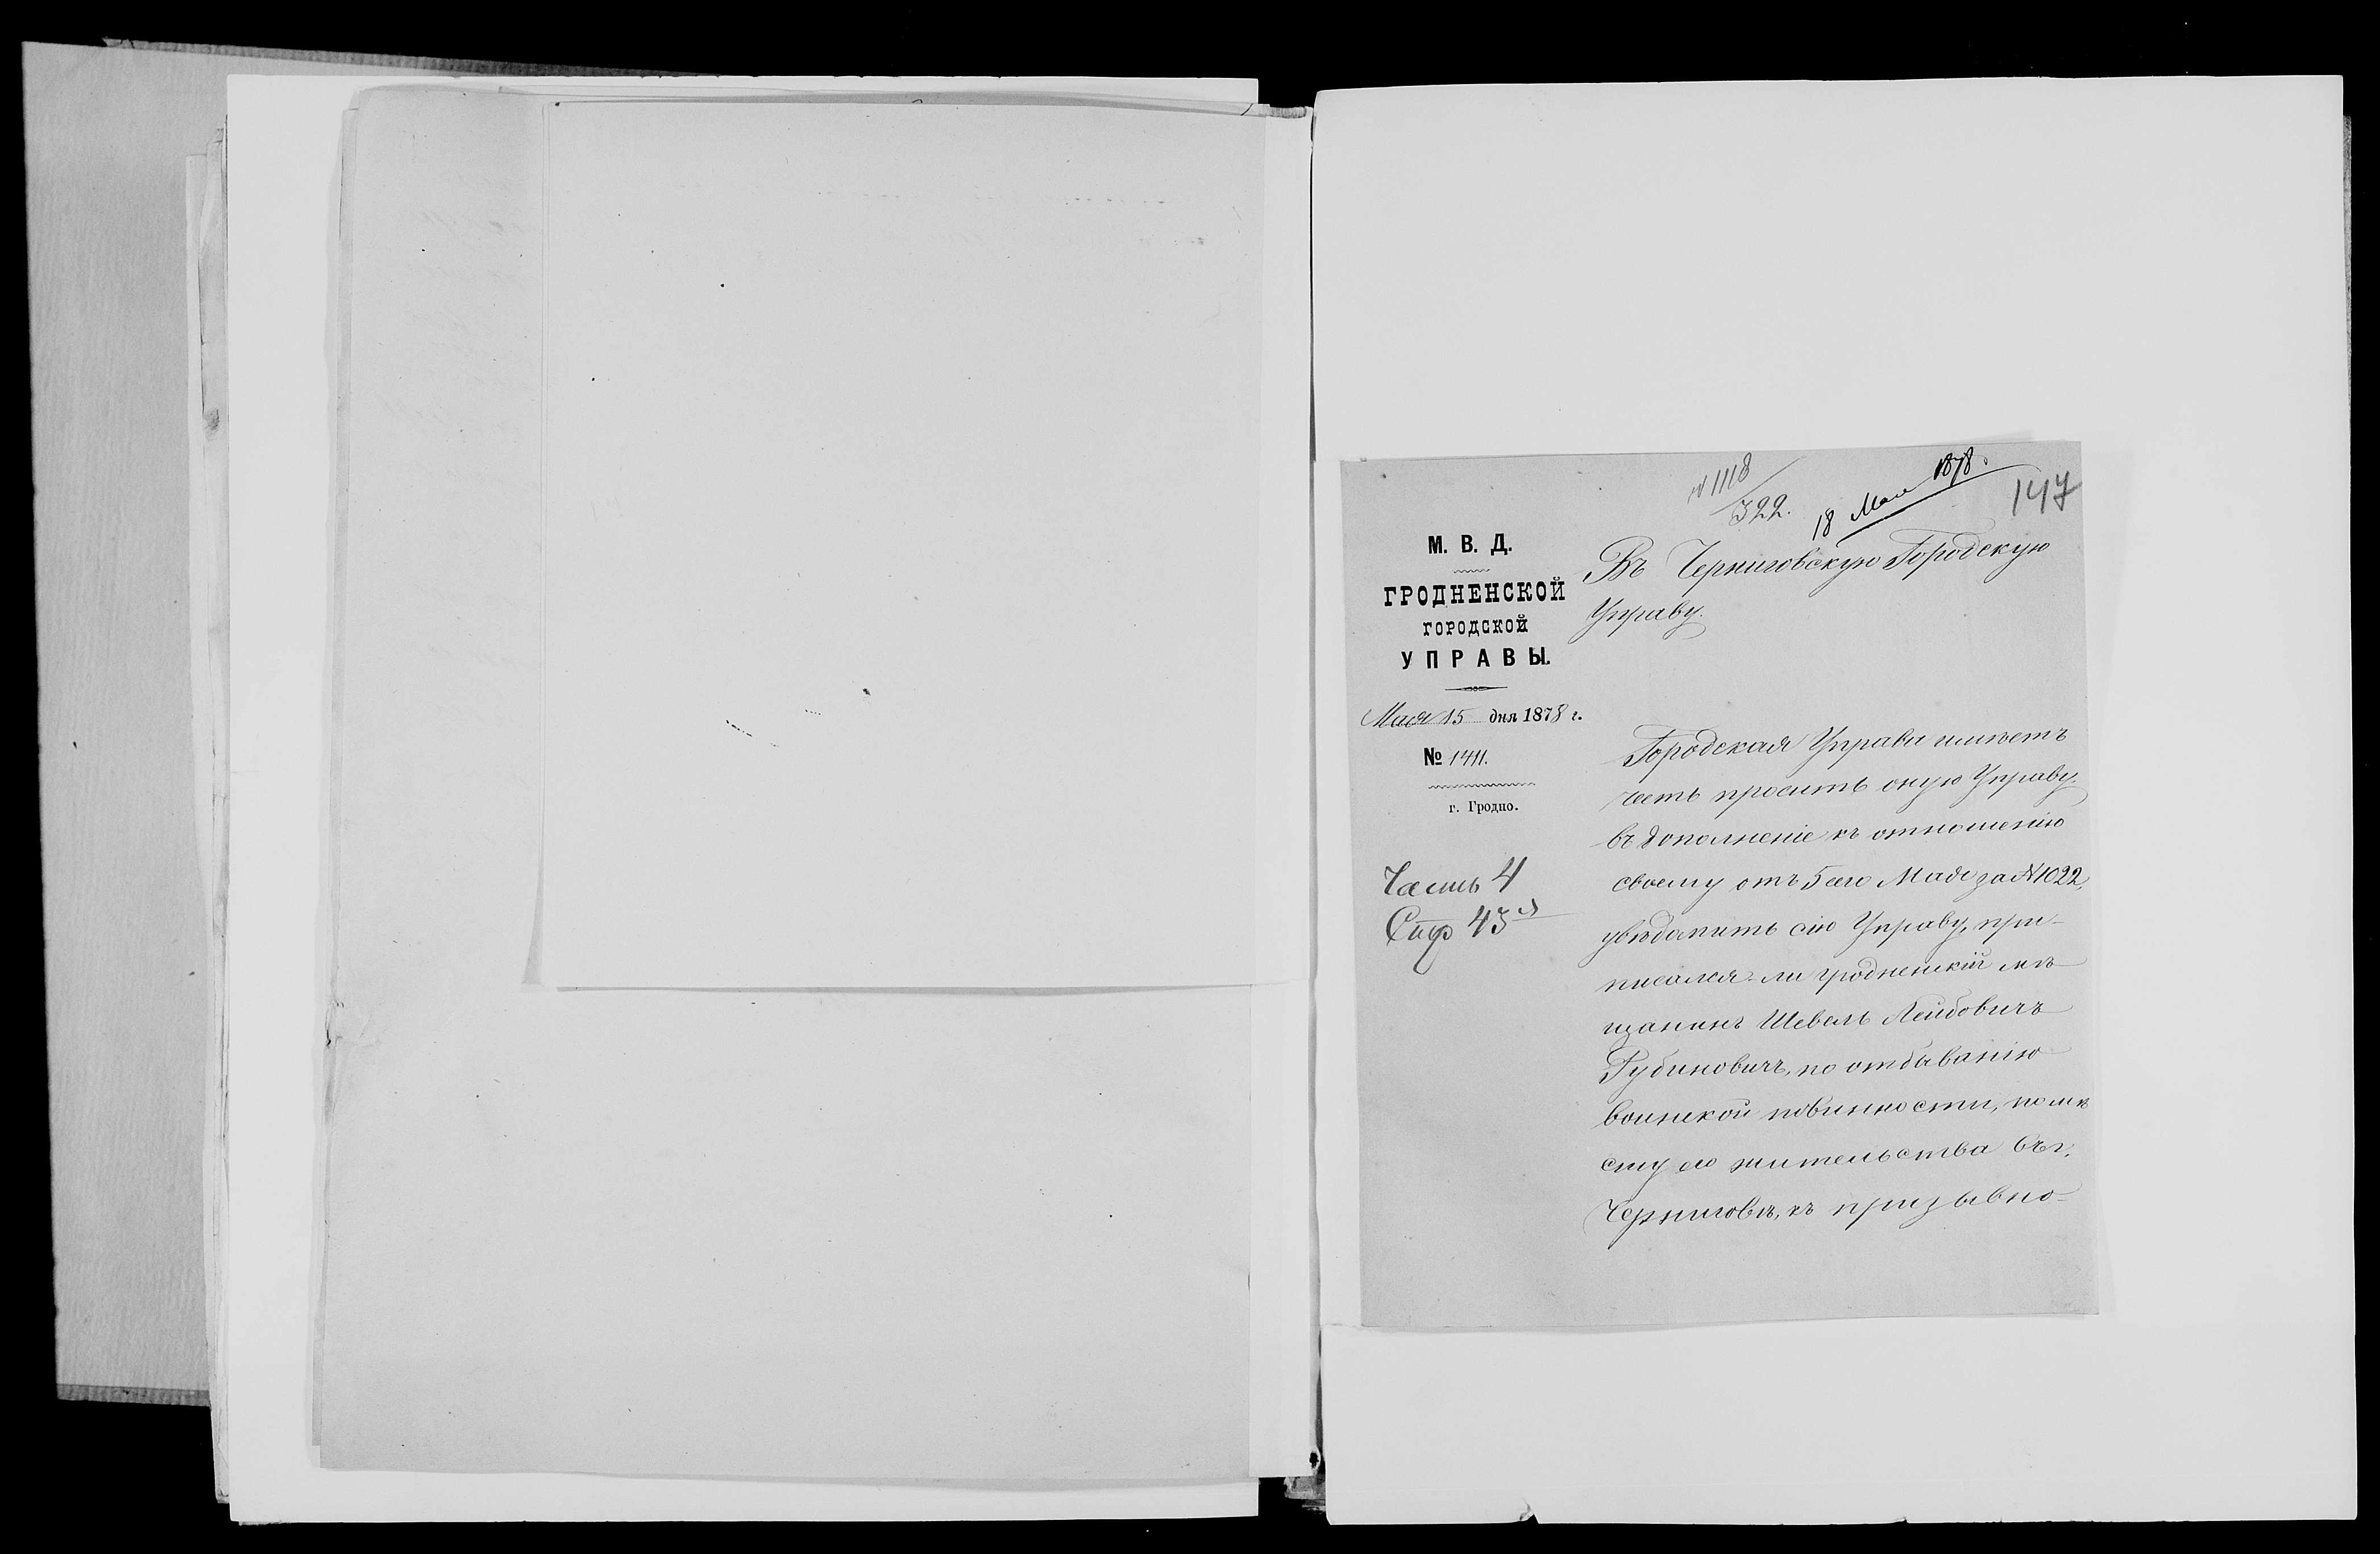 N 1118
322.
18 Мая 1878.
147
М. В. Д.
ГРОДНЕНСКОЙ
ГОРОДСКОЙ
УПРАВЫ.
Мая 15 дня 1878 г.
№ 1411.
г. Гродно.
Часть 4
Стр 43
Въ Черниговскую Городскую
Управу.
Городская Управа имѣетъ
честь просить оную Управу,
въ дополненіе къ отношенію
своему отъ 5 сего Мая за N 1022,
увѣдомить сію Управу, при-
писался-ли гродненскій мѣ-
щанинъ Шевель Лейбовичъ
Рубиновичъ, по отбыванію
воинской повинности, по мѣ
сту его жительства въ г.
Черниговѣ, къ призывно-